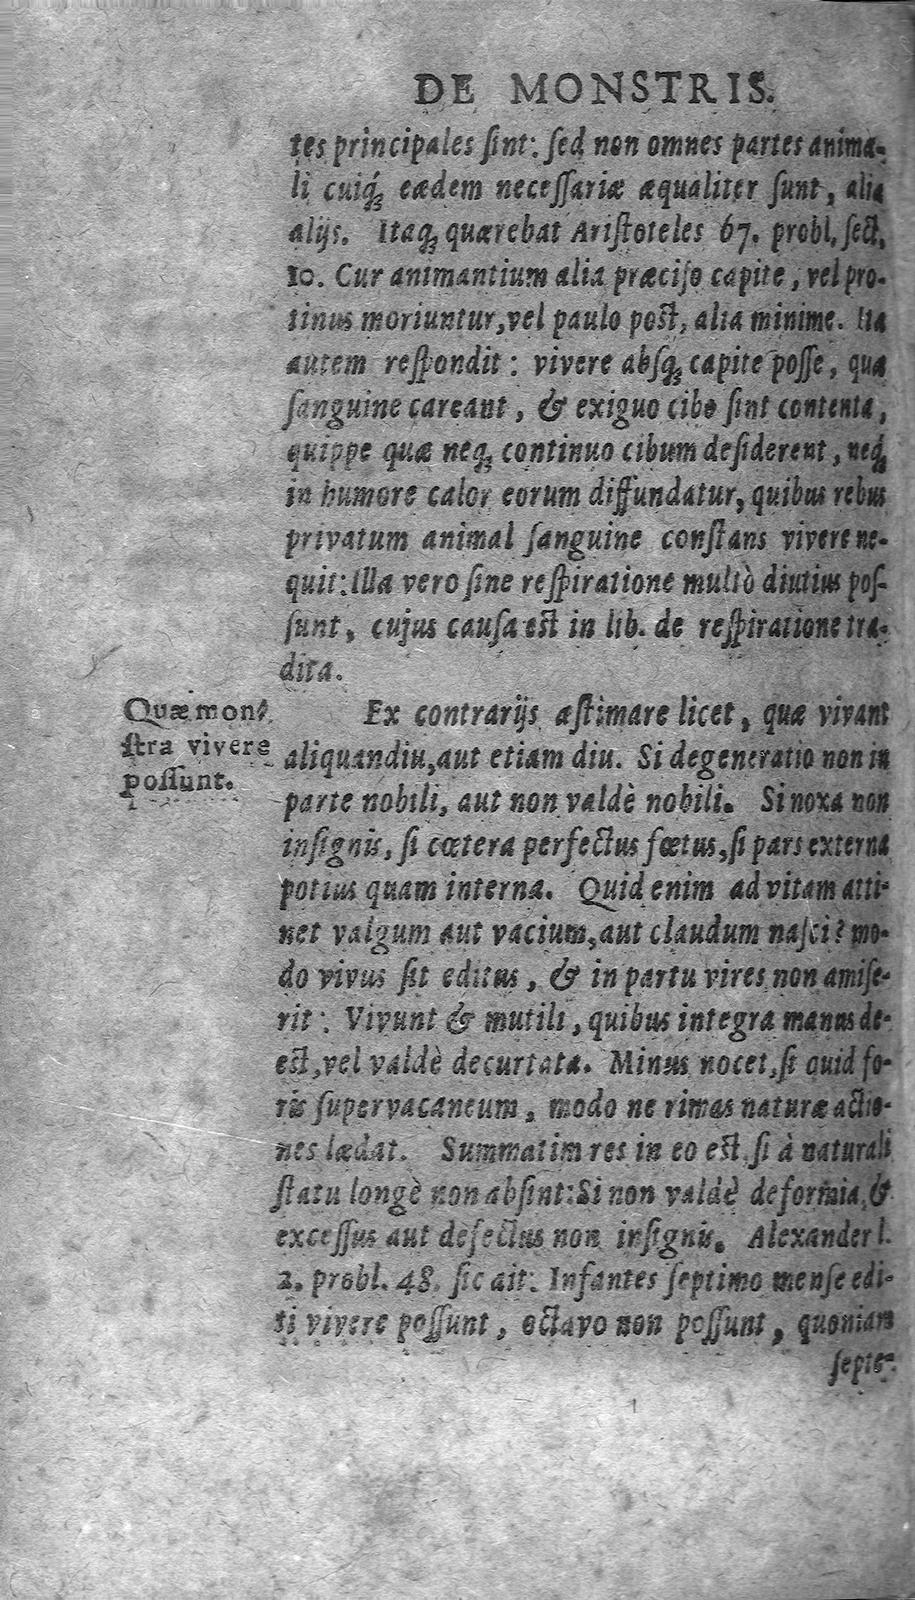 DE MONSTRIS.
tes principales ſint: ſed non omnes partes anima-
li cuiq́ꝫ eædem neceſſariæ æqualiter ſunt, alia
alijs. Itaqꝫ quærebat Ariſtoteles 67. probl. ſect.
10. Cur animantium alia præciſo capite, vel pro-
tinus moriuntur, vel paulo poſt, alia minime. Ita
autem reſpondit: vivere abſqꝫ capite poſſe, quæ
ſanguine careant, & exiguo cibo ſint contenta,
quippe quæ neqꝫ continuo cibum deſiderent, neqꝫ
in humore calor eorum diffundatur, quibus rebus
privatum animal ſanguine conſtans vivere ne-
quit: Illa vero ſine reſpiratione multò diutius poſ-
ſunt, cujus cauſa eſt in lib. de reſpiratione tra-
dita.
Quæ mon-
ſtra vivere
poſſunt.
Ex contrarijs æſtimare licet, quæ vivant
aliquandiu, aut etiam diu. Si degeneratio non in
parte nobili, aut non valdè nobili. Si noxa non
inſignis, ſi cœtera perfectus fœtus, ſi pars externa
potius quam interna. Quid enim ad vitam atti-
net valgum aut vacium, aut claudum naſci? mo-
do vivus ſit editus, & in partu vires non amiſe-
rit: Vivunt & mutili, quibus integra manus de-
eſt, vel valdè decurtata. Minus nocet, ſi quid fo-
ris ſupervacaneum, modo ne rimas naturæ actio-
nes lædat. Summatim res in eo eſt, ſi à naturali
ſtatu longè non abſint: Si non valdè deformia, &
exceſſus aut defectus non inſignis. Alexander l.
2. probl. 48. ſic ait: Infantes ſeptimo menſe edi-
ti vivere poſſunt, octavo non poſſunt, quoniam
ſepte-